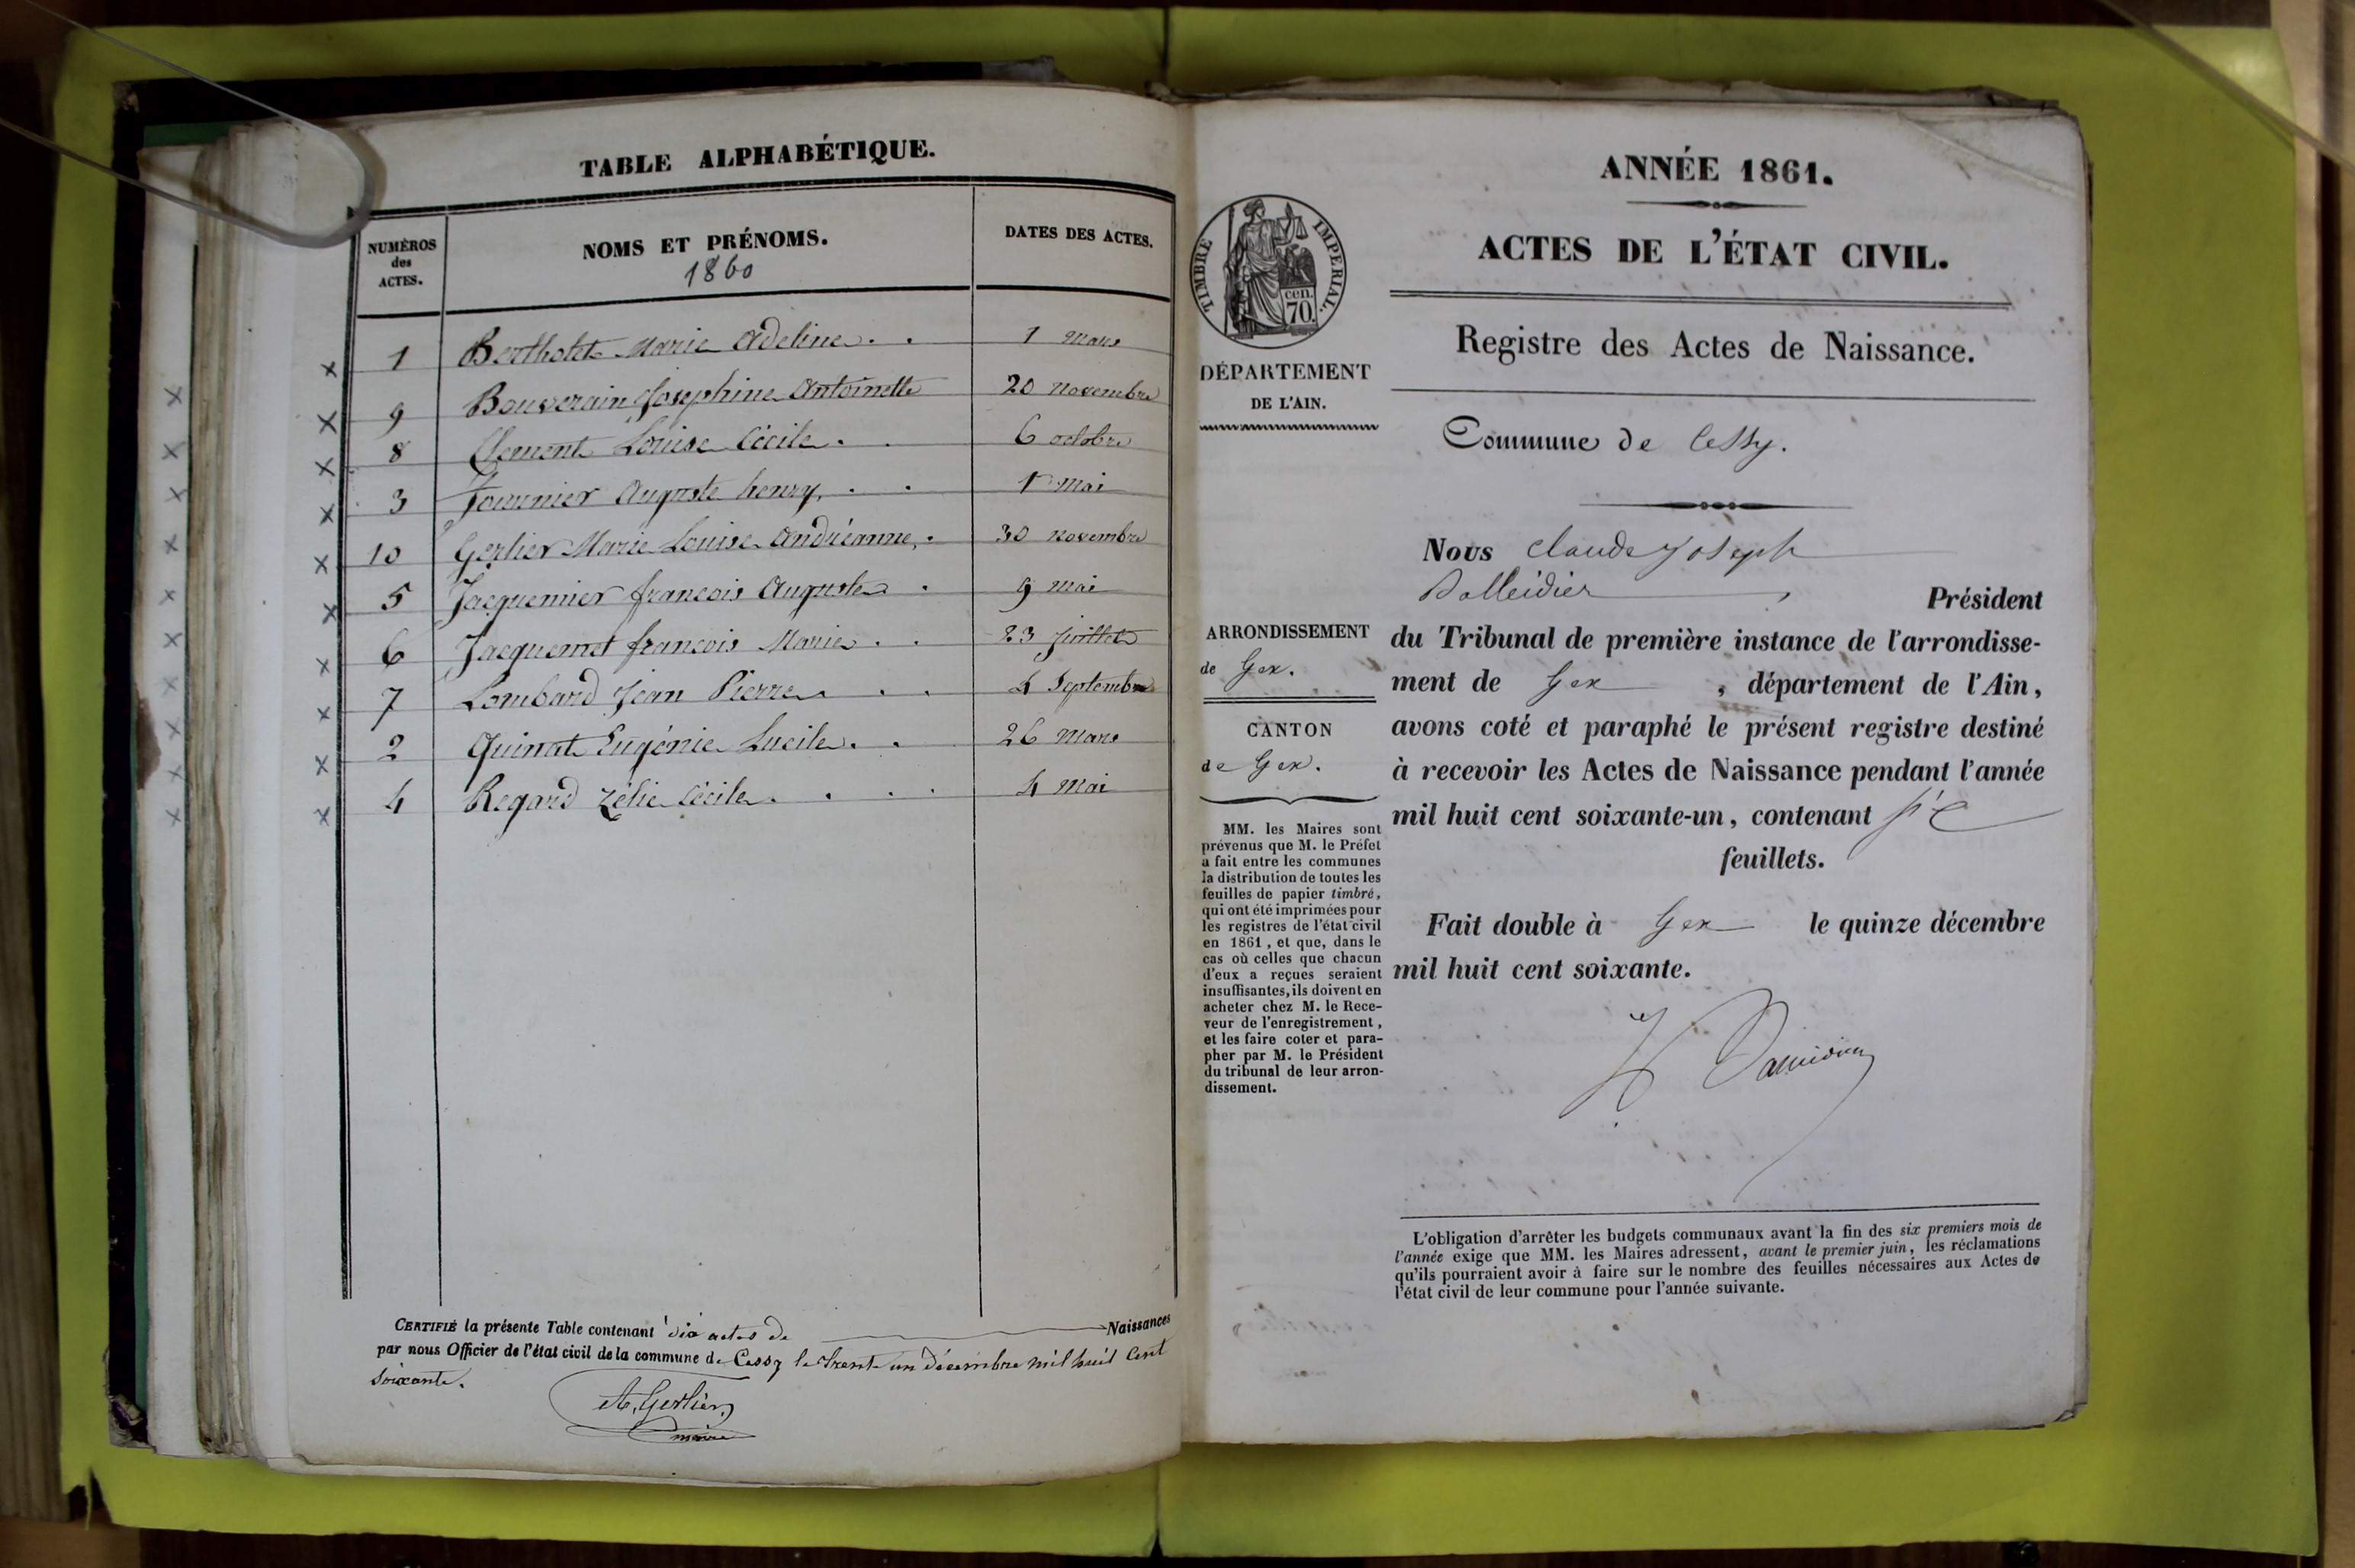 TABLE ALPHABÉTIQUE.
NUMÉROS des ACTES.
NOMS ET PRÉNOMS.
1860
DATES DES ACTES.
1 Bertholet Marie Adeline . . 1 mars
9 Bouverain Josephine Antoinette 20 novembre
8 Clement Louise Cécile . . 6 octobre
3 Fournier Auguste henry, . . 1 mai
10 Gerlier Marie Louise Andréanne, . 30 novembre
5 Jacquemier françois Auguste . 9 mai
6 Jacquemet françois Marie . . 23 juillet
7 Lombard Jean Pierre . . . 4 Septembre
2 Quinat Eugénie Lucile . . 26 mars
4 Regard Zélie Cécile . . . . 4 mai
CERTIFIÉ la présente Table contenant dix actes de Naissances
par nous Officier de l'état civil de la commune de Cessy le trente un décembre mil huit Cent
soixante.
A. Gerlier
maire
ANNÉE 1861.
ACTES DE L'ÉTAT CIVIL.
TIMBRE IMPÉRIAL.
cen.
70.
DÉPARTEMENT
DE L'AIN.
Registre des Actes de Naissance.
Commune de Cessy.
Nous Claude Joseph
Président
ARRONDISSEMENT
de Gex.
CANTON
de Gex.
du Tribunal de première instance de l'arrondisse-
ment de Gex, département de l'Ain,
avons coté et paraphé le présent registre destiné
à recevoir les Actes de Naissance pendant l'année
mil huit cent soixante-un, contenant
feuillets.
Fait double à Gex le quinze décembre
mil huit cent soixante.
MM. les Maires sont
prévenus que M. le Préfet
a fait entre les communes
la distribution de toutes les
feuilles de papier timbré,
qui ont été imprimées pour
les registres de l'état civil
en 1861, et que, dans le
cas où celles que chacun
d'eux a reçues seraient
insuffisantes, ils doivent en
acheter chez M. le Rece-
veur de l'enregistrement,
et les faire coter et para-
pher par M. le Président
du tribunal de leur arron-
dissement.
L'obligation d'arrêter les budgets communaux avant la fin des six premiers mois de
l'année exige que MM. les Maires adressent, avant le premier juin, les réclamations
qu'ils pourraient avoir à faire sur le nombre des feuilles nécessaires aux Actes de
l'état civil de leur commune pour l'année suivante.